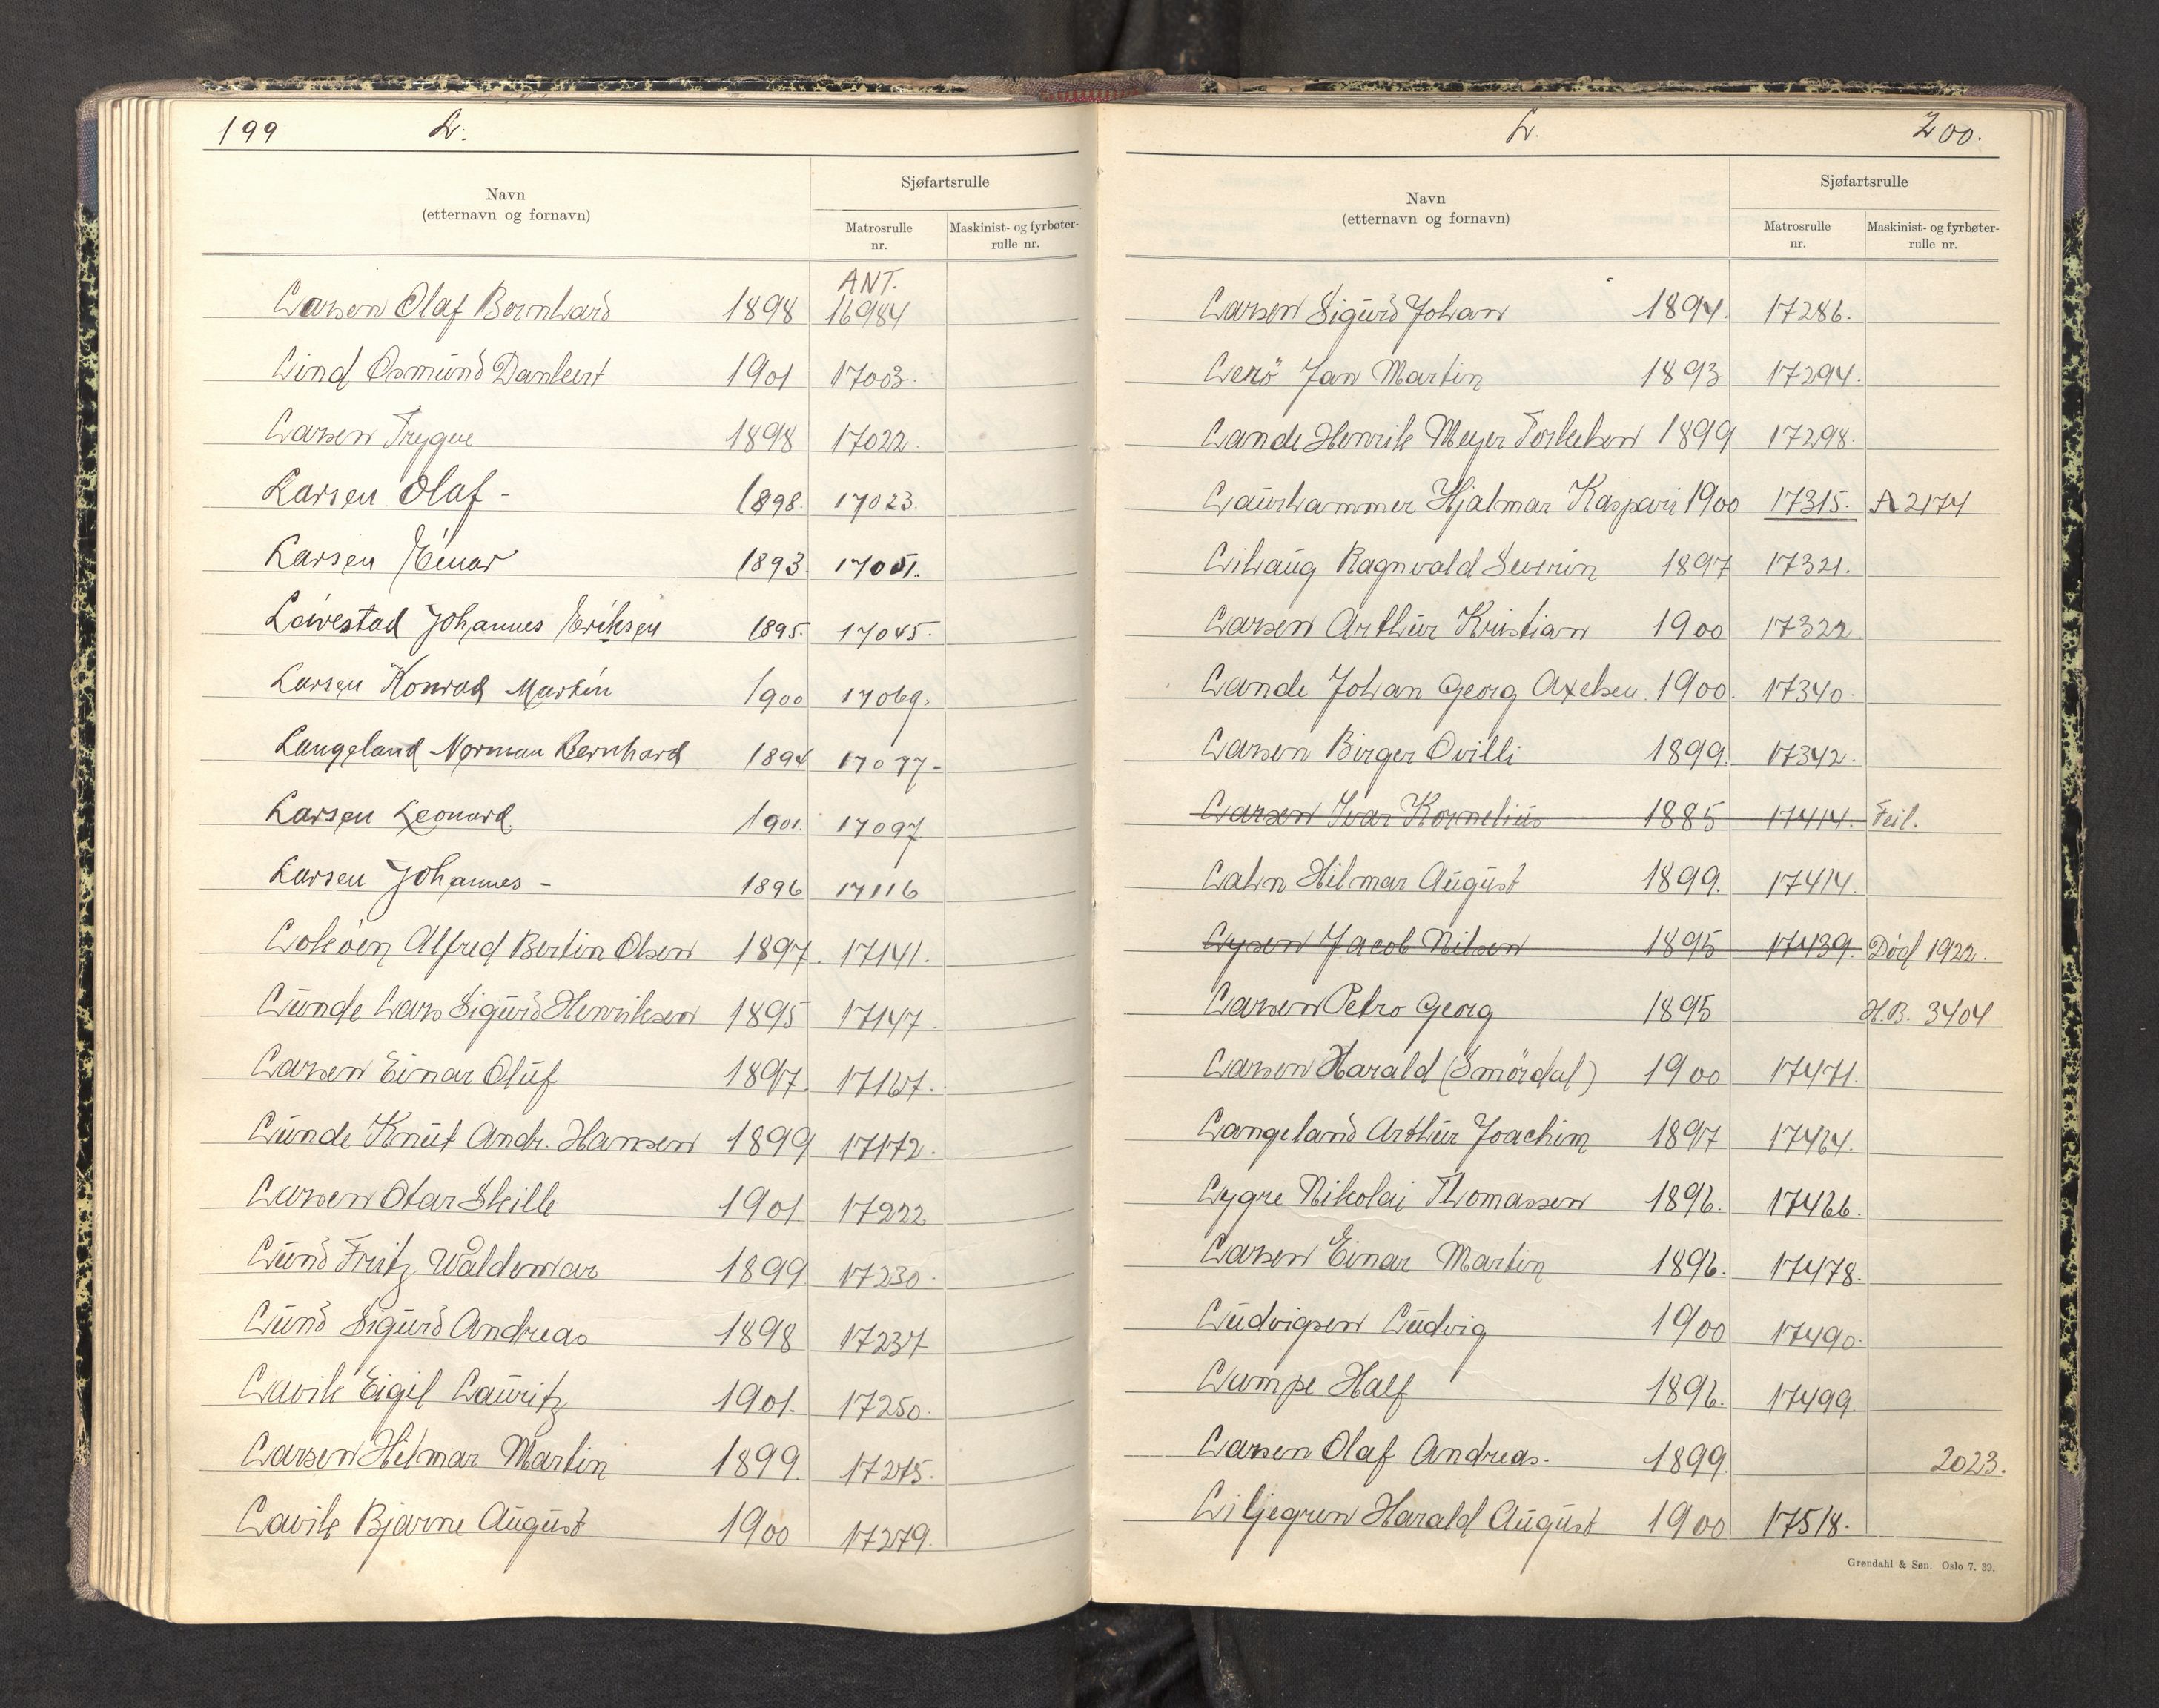 199 L.
Navn
(etternavn og fornavn)
Sjøfartsrulle
Matrosrulle
nr.
Maskinist- og fyrbøter-
rulle nr.
ANT.
Larsen Olaf Bernhard 1898 16984
Lind Osmund Dankert 1901 17003.
Larsen Trygve 1898 17022.
Larsen Olaf - 1898. 17023.
Larsen Einar 1893. 17051.
Lovestad Johannes Eriksen 1895. 17045.
Larsen Konrad Martin 1900 17069.
Langeland Norman Bernhard 1894 17077-
Larsen Leonard 1901. 17097
Larsen Johannes - 1896 17116
Lokøen Alfred Bertin Olsen 1897. 17141.
Lunde Lars Sigurd Henriksen 1895 17147.
Larsen Einar Oluf 1897. 17167.
Lunde Knut Andr. Hansen 1899 17172.
Larsen Otar Skille 1901 17222
Lund Fritz Waldemar 1899 17230.
Lund Sigurd Andreas 1898 17237
Lavik Eigil Lauritz 1901. 17250.
Larsen Hilmar Martin 1899 17275.
Lavik Bjarne August 1900 17279.
L. 200.
Navn
(etternavn og fornavn)
Sjøfartsrulle
Matrosrulle
nr.
Maskinist- og fyrbøter-
rulle nr.
Larsen Sigurd Johan 1894. 17286.
Lerö Jan Martin 1893 17294.
Lande Henrik Meyer Torleksen 1899 17298.
Laurhammer Hjalmar Kaspari 1900 17315. A 2174
Lihaug Ragnvald Severin 1897 17321.
Larsen Arthur Kristian 1900 17322.
Lande Johan Georg Axelsen 1900. 17340.
Larsen Birger Ovilli 1899. 17342.
Larsen Ivar Kornelius 1885 17414. Feil.
Lahn Hilmar August 1899. 17414.
Lysen Jacob Nilsen 1895 17439. Død 1922.
Larsen Petro Georg 1895 H.B. 3404
Larsen Harald (Smørdal) 1900 17471.
Langeland Arthur Joachim 1897 17464.
Lygre Nikolai Thomassen 1896. 17466.
Larsen Einar Martin 1896. 17478.
Ludvigsen Ludvig 1900 17490.
Lampe Half 1896. 17499.
Larsen Olaf Andreas. 1899. 2023.
Liljegren Harald August 1900 17518.
Grøndahl & Søn. Oslo 7. 39.